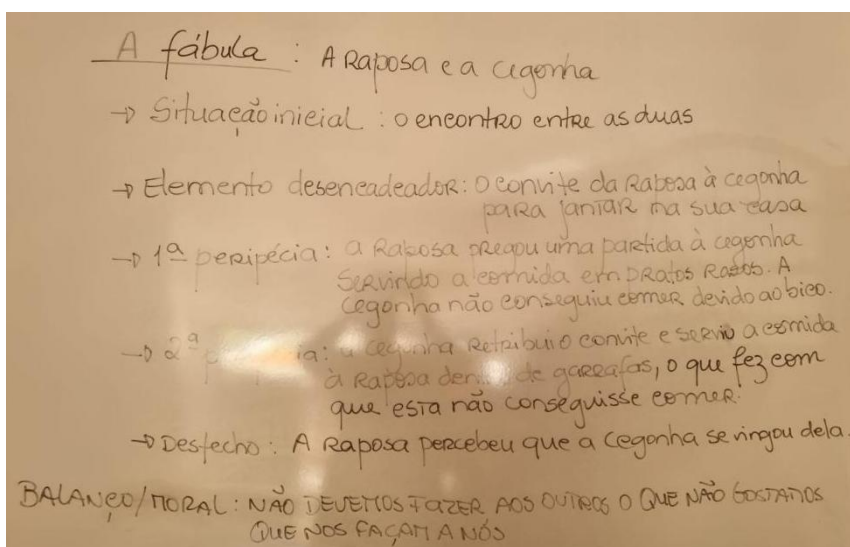 A fábula : A Raposa e a cegonha
→ Situação inicial : o encontro entre as duas
→ Elemento desencadeador: O convite da Raposa à cegonha
para jantar na sua casa
→ 1ª peripécia: a Raposa pregou uma partida à cegonha
servindo a comida em pratos rasos. A
cegonha não conseguiu comer devido ao bico.
→ 2ª a cegonha retribui o convite e serviu a comida
à Raposa de garrafas, o que fez com
que esta não conseguisse comer.
→ Desfecho: A Raposa percebeu que a cegonha se vingou dela.
BALANÇO/MORAL: NÃO DEVEMOS FAZER AOS OUTROS O QUE NÃO GOSTAMOS
QUE NOS FAÇAM A NÓS